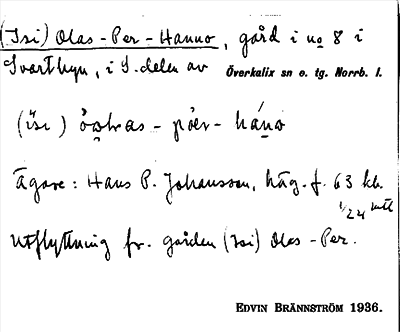 (Isi) Olas-Per-Hanno, gård i no 8 i
Svartbyn, i S. delen av Överkalix sn o. tg. Norrb. l.
Ägare: Hans P. Johansson, häg. f. 63 kh.
1/24 mtl
Utflyttning fr. gården (Isi) Olas-Per.
EDVIN BRÄNNSTRÖM 1936.